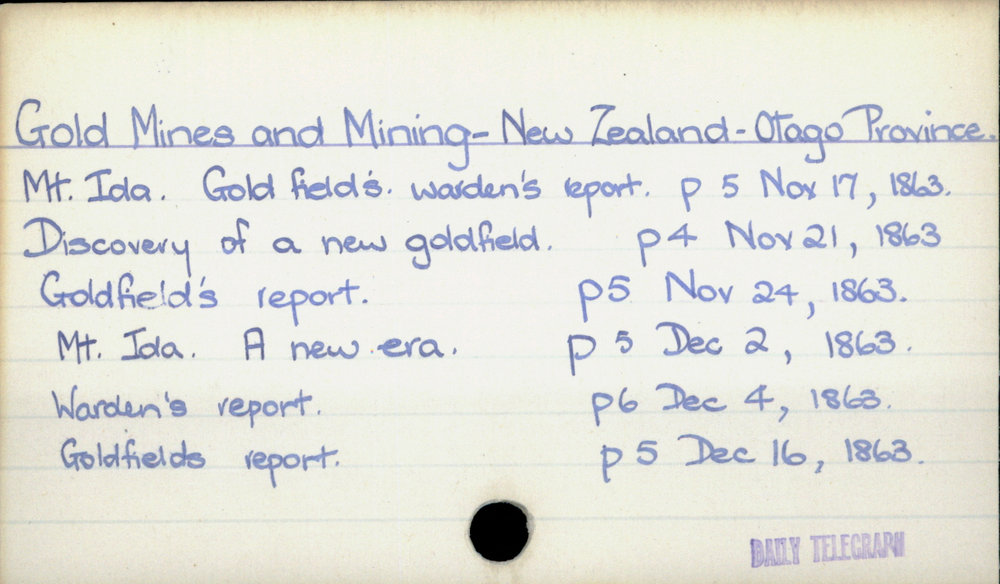 Gold Mines and Mining - New Zealand - Otago Province.
Mt. Ida. Gold field's. warden's report. p 5 Nov 17, 1863.
Discovery of a new goldfield. p4 Nov 21, 1863
Goldfield's report. p5 Nov 24, 1863.
Mt. Ida. A new era. p 5 Dec 2, 1863.
Warden's report. p6 Dec 4, 1863.
Goldfields report. p 5 Dec 16, 1863.
DAILY TELEGRAPH